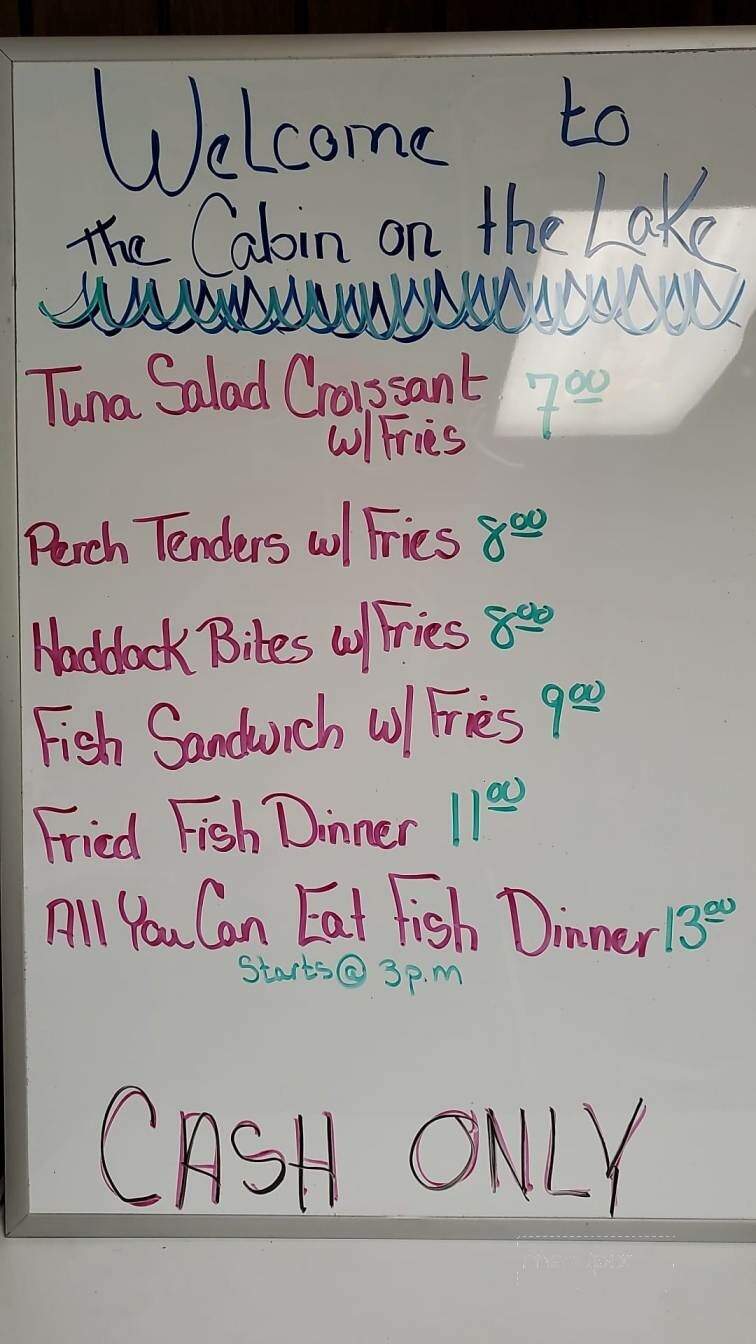 Welcome to
the Cabin on the Lake
Tuna Salad Croissant 7.00
w/ Fries
Perch Tenders w/ Fries 8.00
Haddock Bites w/ Fries 8.00
Fish Sandwich w/ Fries 9.00
Fried Fish Dinner 11.00
All You Can Eat Fish Dinner 13.00
Starts @ 3 p.m
CASH ONLY